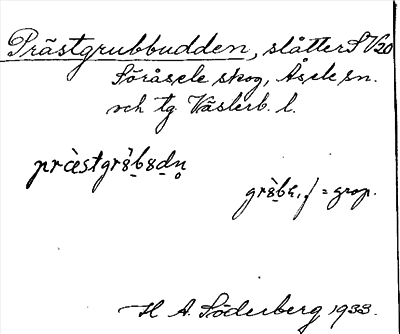 Prästgrubbudden, slåtter SV20
Söråsele skog, Åsele sn.
och tg. Västerb. l.
prästgrȣbȣdn̥
grȣbɛ, f = grop.
H A. Söderberg 1933.